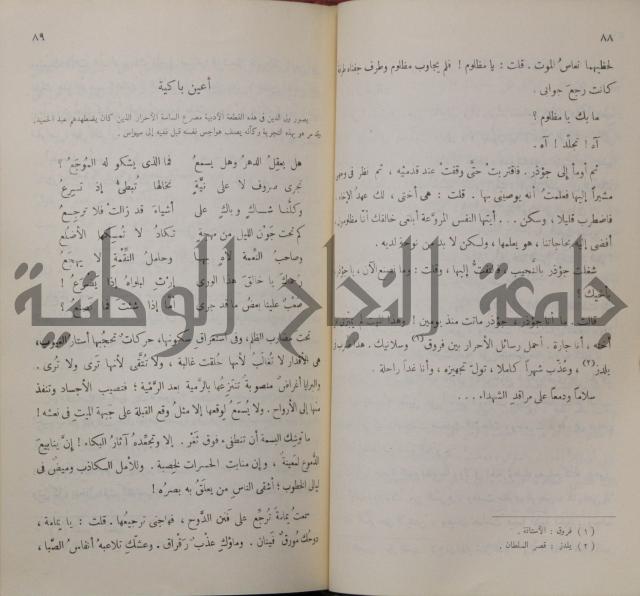 ٨٨
لحظيهما نعاسُ الموت . قلت : يا مظلوم ! فلم يجاوب مظلوم وطرف جفناه طرفة
كانت رجعَ جوابى .
ما بك يا مظلوم ؟
آه ! تجلّد ! آه .
ثم أومأ إلى جؤذر . فاقتربتُ حتَّى وقفتُ عند قدميْه ، ثم نظر فى وجهى
مشيراً إليها فعلمتُ أنه يوصينى بها . قلت : هى أختى ، لك عهدُ الإخاء
فاضطرب قليلا ، وسكن . . . أيتها النفس المروّعة أبلغى خالقك أنّا مظلومون
أفضى إليه بحاجاتنا ، هو يعلمها ، ولكن لا بد من لديه .
شغلت جؤذر بالنَّحيب إليها ، وقلت : وما نصنع الآن ، يا جؤذر
بأخيك ؟
قالت . ما أنا جؤذر ، جؤذر ماتت منذ يومين ! وهذا
أخته ، أنا جارة . أحمل رسائل الأحرار بين فروق (١) وسلانيك . هذا
يلدز (٢) ، وعُذّب شهراً كاملا ، تولّ تجهيزه ، وأنا غداً راحلة .
سلاماً ودمعاً على مراقدِ الشهداء . . .
(١) فروق : الآستانة .
(٢) يلدز : قصر السلطان .
٨٩
أعين باكية
يصور ولى الدين فى هذه القطعة الأدبية مصرع الساسة الأحرار الذين كان يضطهدهم عبد الحميد.
وقد مر هو بهذه التجربة وكأنه يصف هواجس نفسه قبل نفيه إلى سيواس .
هل يعقِلُ الدهرُ وهل يسمعُ فما الذى يشكو له المُوجَعُ ؟
تجرى صروف لا على نيَّةٍ نخالها تُبطئُ إذ تسرِعُ
وكلُّنا شاكٍ وباكٍ على أشياءَ قد زالتْ فلا ترجعُ
كم تحت جَوْن الليل من مهجةٍ تكادُ لا تُمسِكها الأضلُعُ
وصاحبُ النَّعمة لاهٍ بها وحاملُ النِّقْمةِ لا يهجعُ
يا خالقَ هذا الورى إرْثِ لبلواهُ إذا يضرعُ !
صعْبٌ علينا بعضُ ما قد جرى إذا شئتَ فما نصنعُ ؟
تحت مضاربِ الظلم، وفى استغراق سكونها، حركاتٌ تحجُبها أستار الغيوب،
هى الأقدار لا تُغالَبُ لأنها خُلقت غالبة ، ولا تُتَّقى لأنها تَرى ولا تُرى .
والبرايا أغراضٌ منصوبة تنتزعُها بالرَّمية بعد الرمّية ؛ فتصيب الأجساد وتنفذ
منها إلى الأرواح . ولا يُسمَعُ لوقعها إلا مثلُ وقع القبلة على جَبهة الميتِ فى نعشه !
ما توشِك البسمة أن تنطفئ فوق ثَغْر . إلا وتجفّده آثارُ البكاء ! إنَّ ينابيعَ
الدُّموع لمَعينةٌ ، وإن منابت الحسرات لخصبة . وللأمل الكاذب وميضٌ فى
ليالى الخطوب ؛ أشقى الناسِ من يعلَقُ به بصرُه !
سمعتُ يمامةً تُرجِّع على فَنَن الدَّوح ، فهاجنى ترجيعُها . قلت : يا يمامة ،
دوحُك مُورِقٌ فَينان . وماؤكِ عذْبٌ رَقْراق . وعشّكِ تلاعبه أنفاسُ الصَّبا ،
جامعة النجاح الوطنية